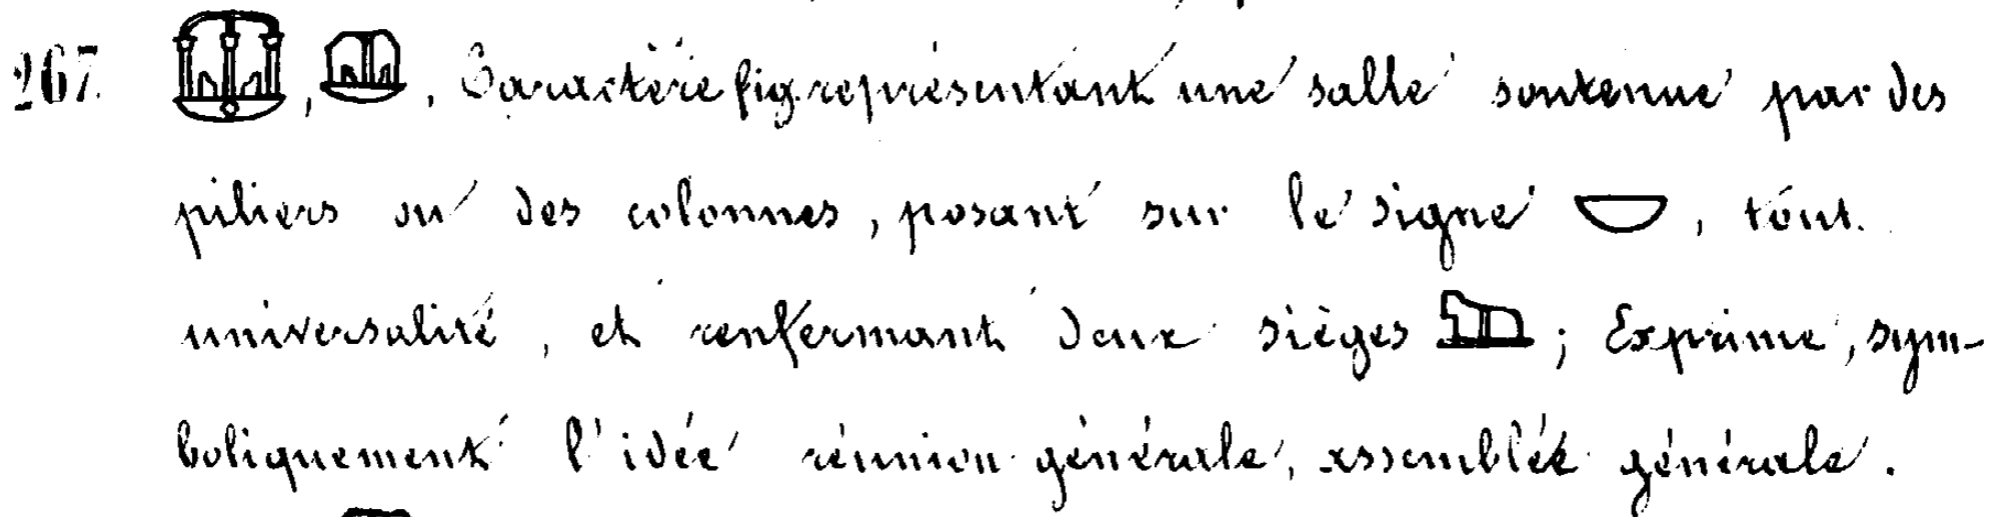 267. , . Caractère fig. représentant une salle soutenue par des
piliers ou des colonnes, posant sur le signe , tout.
universalité, et renfermant deux sièges ; Exprime, sym-
boliquement l'idée réunion générale, assemblée générale.